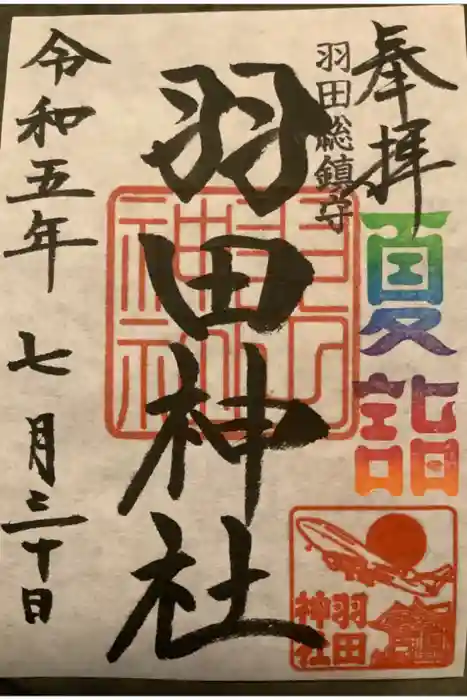 奉拝
夏詣
羽田総鎮守
羽田神社
令和五年 七月三十日
羽田
神社